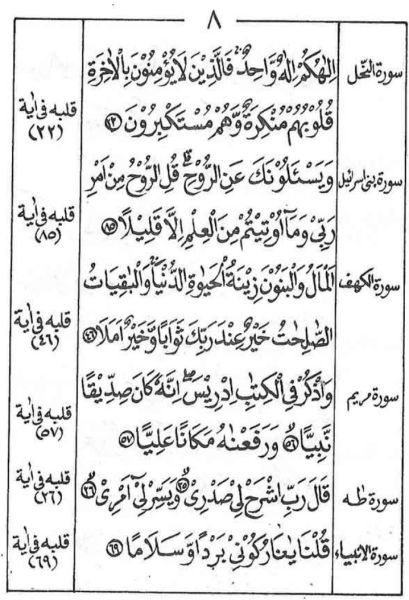 ٨
سورة النحل
اِلٰهُكُمْ اِلٰهٌ وَّاحِدٌ ۚ فَالَّذِيْنَ لَا يُؤْمِنُوْنَ بِالْاٰخِرَةِ
قُلُوْبُهُمْ مُّنْكِرَةٌ وَّهُمْ مُّسْتَكْبِرُوْنَ ﴿٢٢﴾
قلبه فى اية
(٢٢)
سورة بنى اسرائيل
وَيَسْـَٔلُوْنَكَ عَنِ الرُّوْحِ ؕ قُلِ الرُّوْحُ مِنْ اَمْرِ
رَبِّىْ وَمَآ اُوْتِيْتُمْ مِنَ الْعِلْمِ اِلَّا قَلِيْلًا ﴿٨٥﴾
قلبه فى اية
(٨٥)
سورة الكهف
اَلْمَالُ وَالْبَنُوْنَ زِيْنَةُ الْحَيٰوةِ الدُّنْيَا ۚ وَالْبٰقِيَاتُ
الصّٰلِحٰتُ خَيْرٌ عِنْدَ رَبِّكَ ثَوَابًا وَّخَيْرٌ اَمَلًا ﴿٤٦﴾
قلبه فى اية
(٤٦)
سورة مريم
وَاذْكُرْ فِى الْكِتٰبِ اِدْرِيْسَ ؗ اِنَّهٗ كَانَ صِدِّيْقًا
نَّبِيًّا ﴿٥٦﴾ وَّرَفَعْنٰهُ مَكَانًا عَلِيًّا ﴿٥٧﴾
قلبه فى اية
(٥٧)
سورة طه
قَالَ رَبِّ اشْرَحْ لِىْ صَدْرِىْ ﴿٢٥﴾ وَيَسِّرْ لِىْٓ اَمْرِىْ ﴿٢٦﴾
قلبه فى اية
(٢٦)
سورة الانبياء
قُلْنَا يٰنَارُ كُوْنِىْ بَرْدًا وَّسَلَامًا ﴿٦٩﴾
قلبه فى اية
(٦٩)